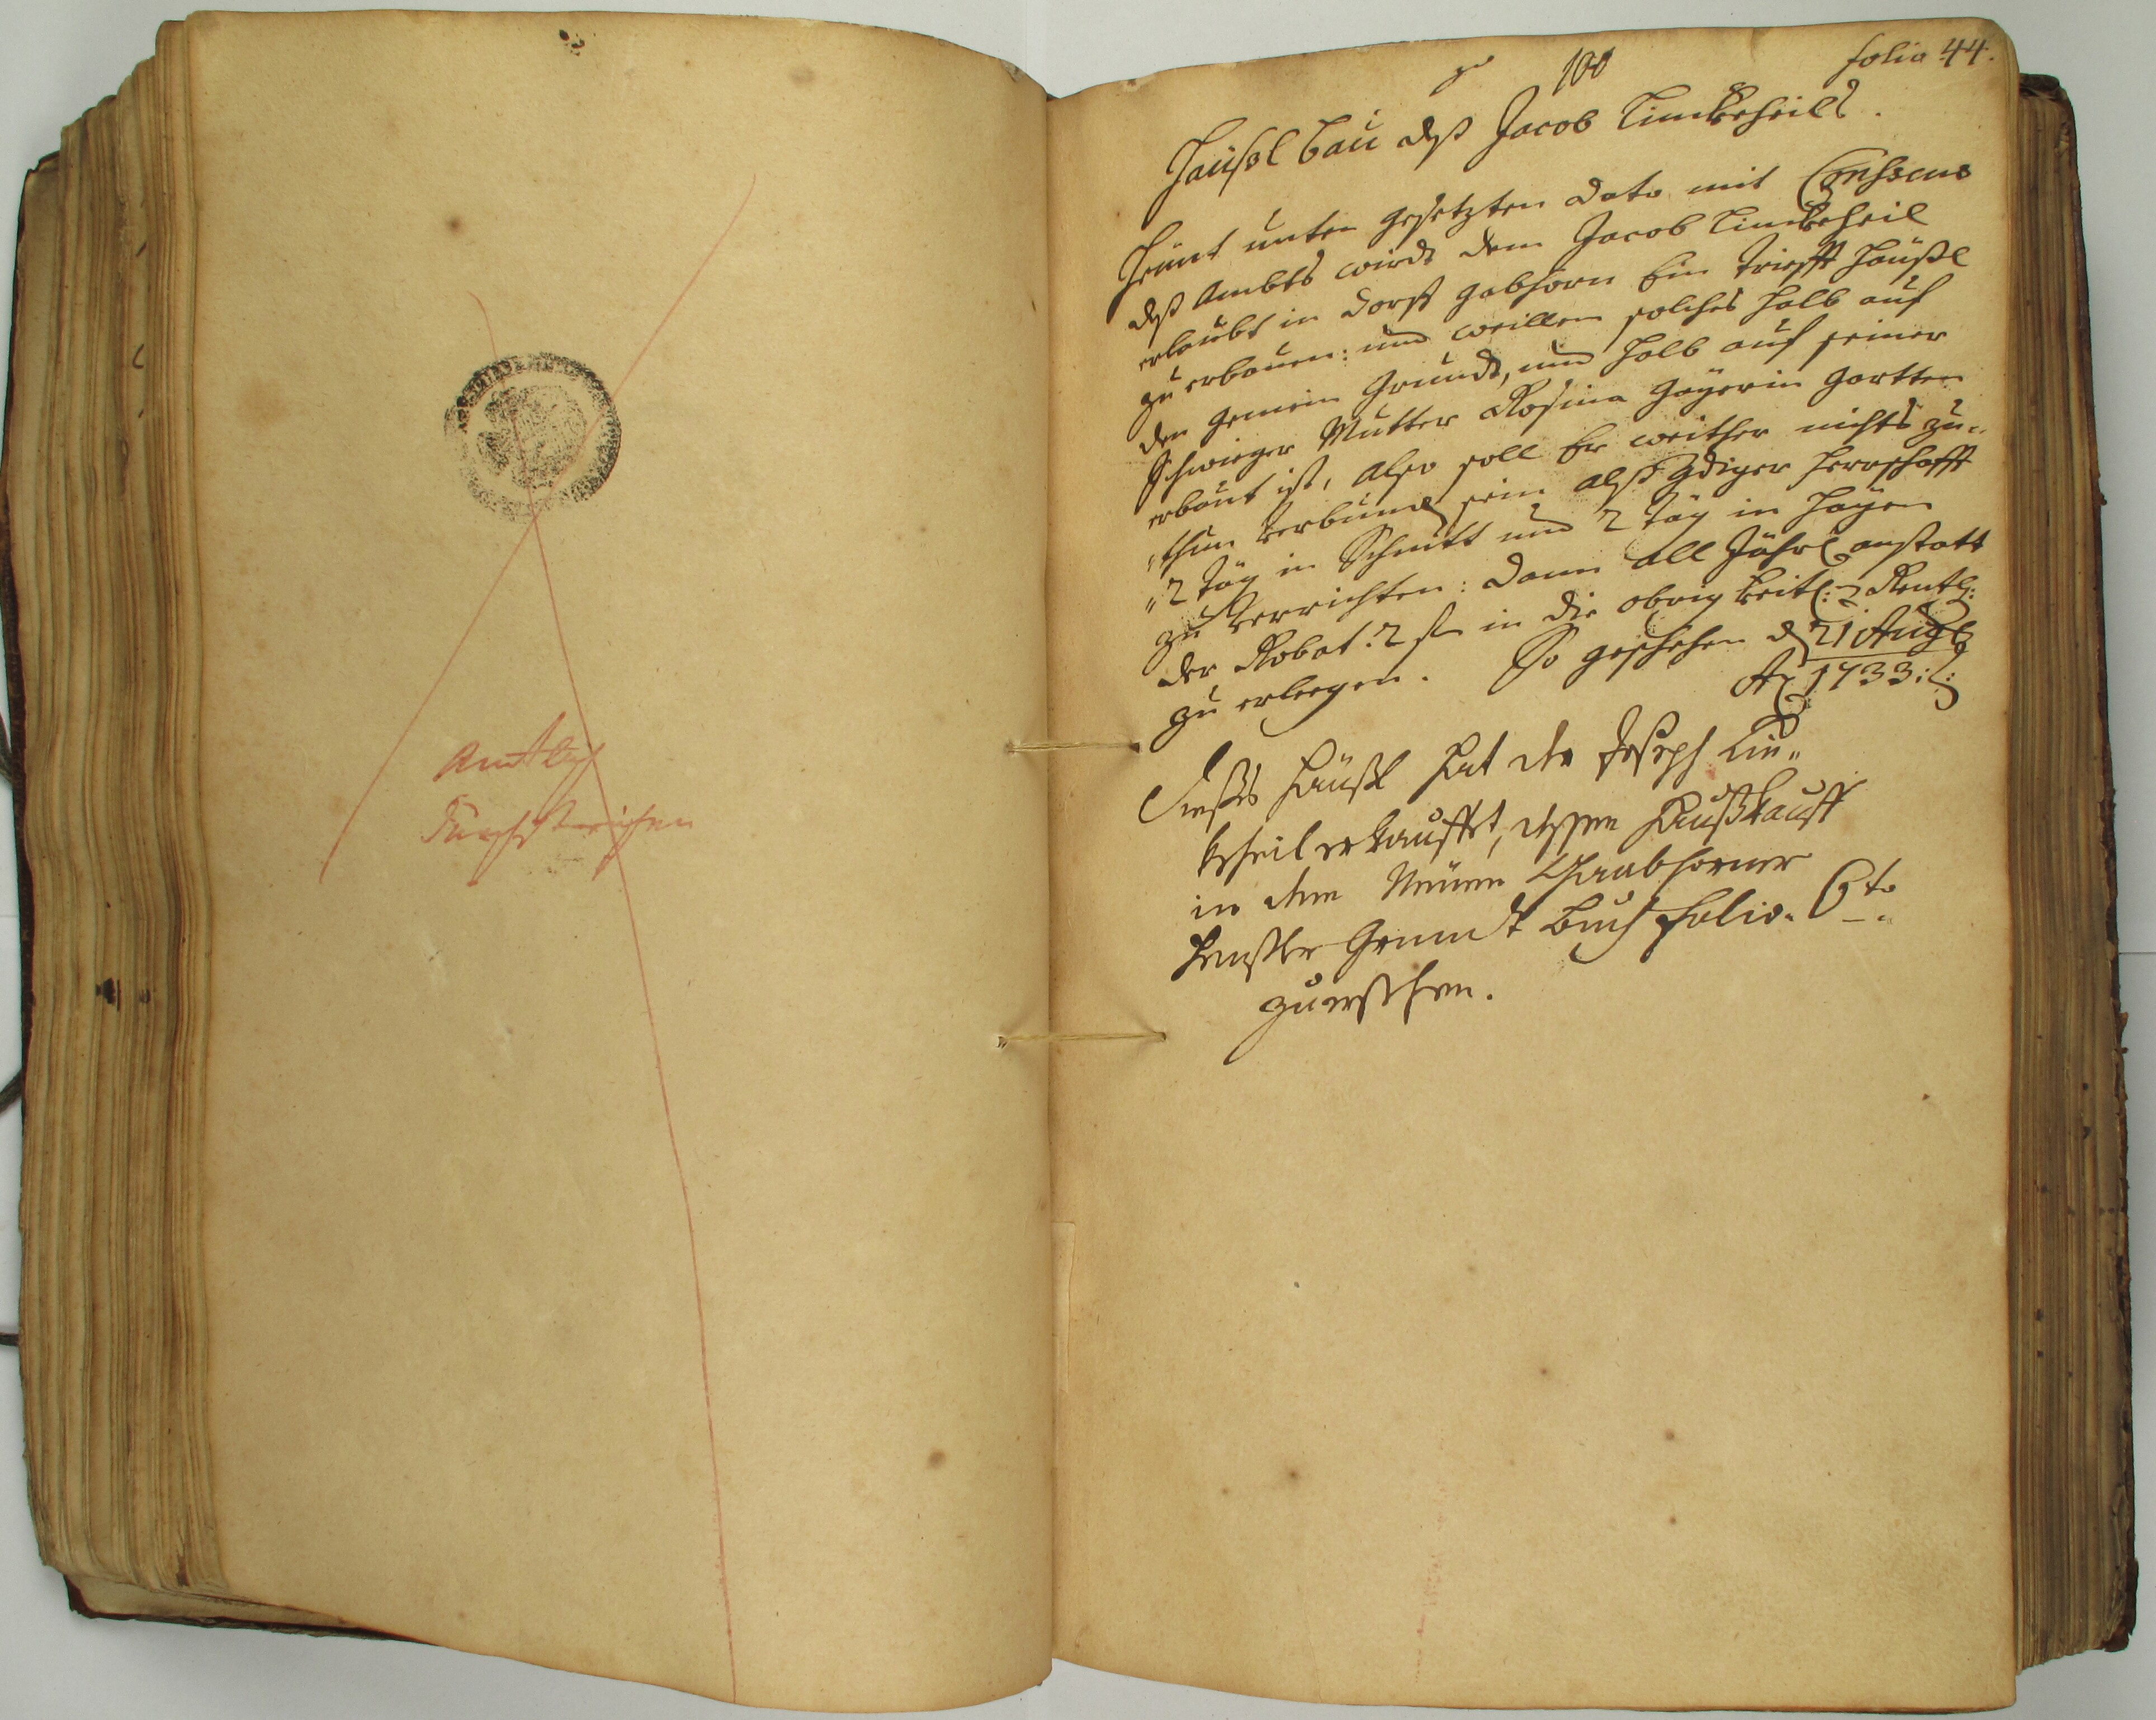 Amtlich
Durchstrichen
100
folio 44.
Häußl Bau deß Jacob Linkeheils.
Heünt unten gesetzten Dato mit Consens
deß Ambts wird dem Jacob Linkeheil
erlaubt in Dorff Gabhorn Ein Trifft Häußl
zu erbauen: und weillen solches halb auf
den gemein Grundt, und halb auf seiner
Schwieger Mutter Rosina Gayerin Gartten
erbaut ist, Also soll Er weither nichts zu„
„thun verbund. sein alß gdiger Herrschafft
„2 Täg in Schnitt und 2 Täg in Hayen
zu verrichten: dann all Jährl. anstatt
der Robot. 2 fl in die obrigkeitl: Rentt:
zu erleegen. So geschehen d 21 Aug
Ao 1733:
Dießes Häußl hat der Joseph Lin„
keheil erkaufft, dessen Haußkauff
in dem Neüen Gaabhorner
Heußler Grundt Buch folio. 6to
zuersehen.